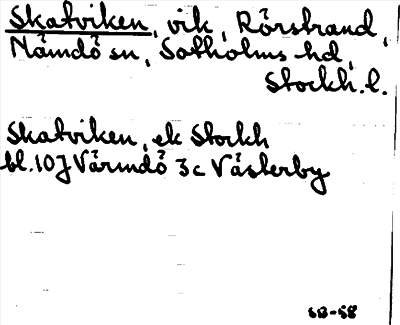 Skatviken, vik, Rörstrand,
Nämdö sn, Sotholms hd,
Stockh. l.
Skatviken, ek Stockh
bl. 10J Värmdö 3c Västerby
SB-58